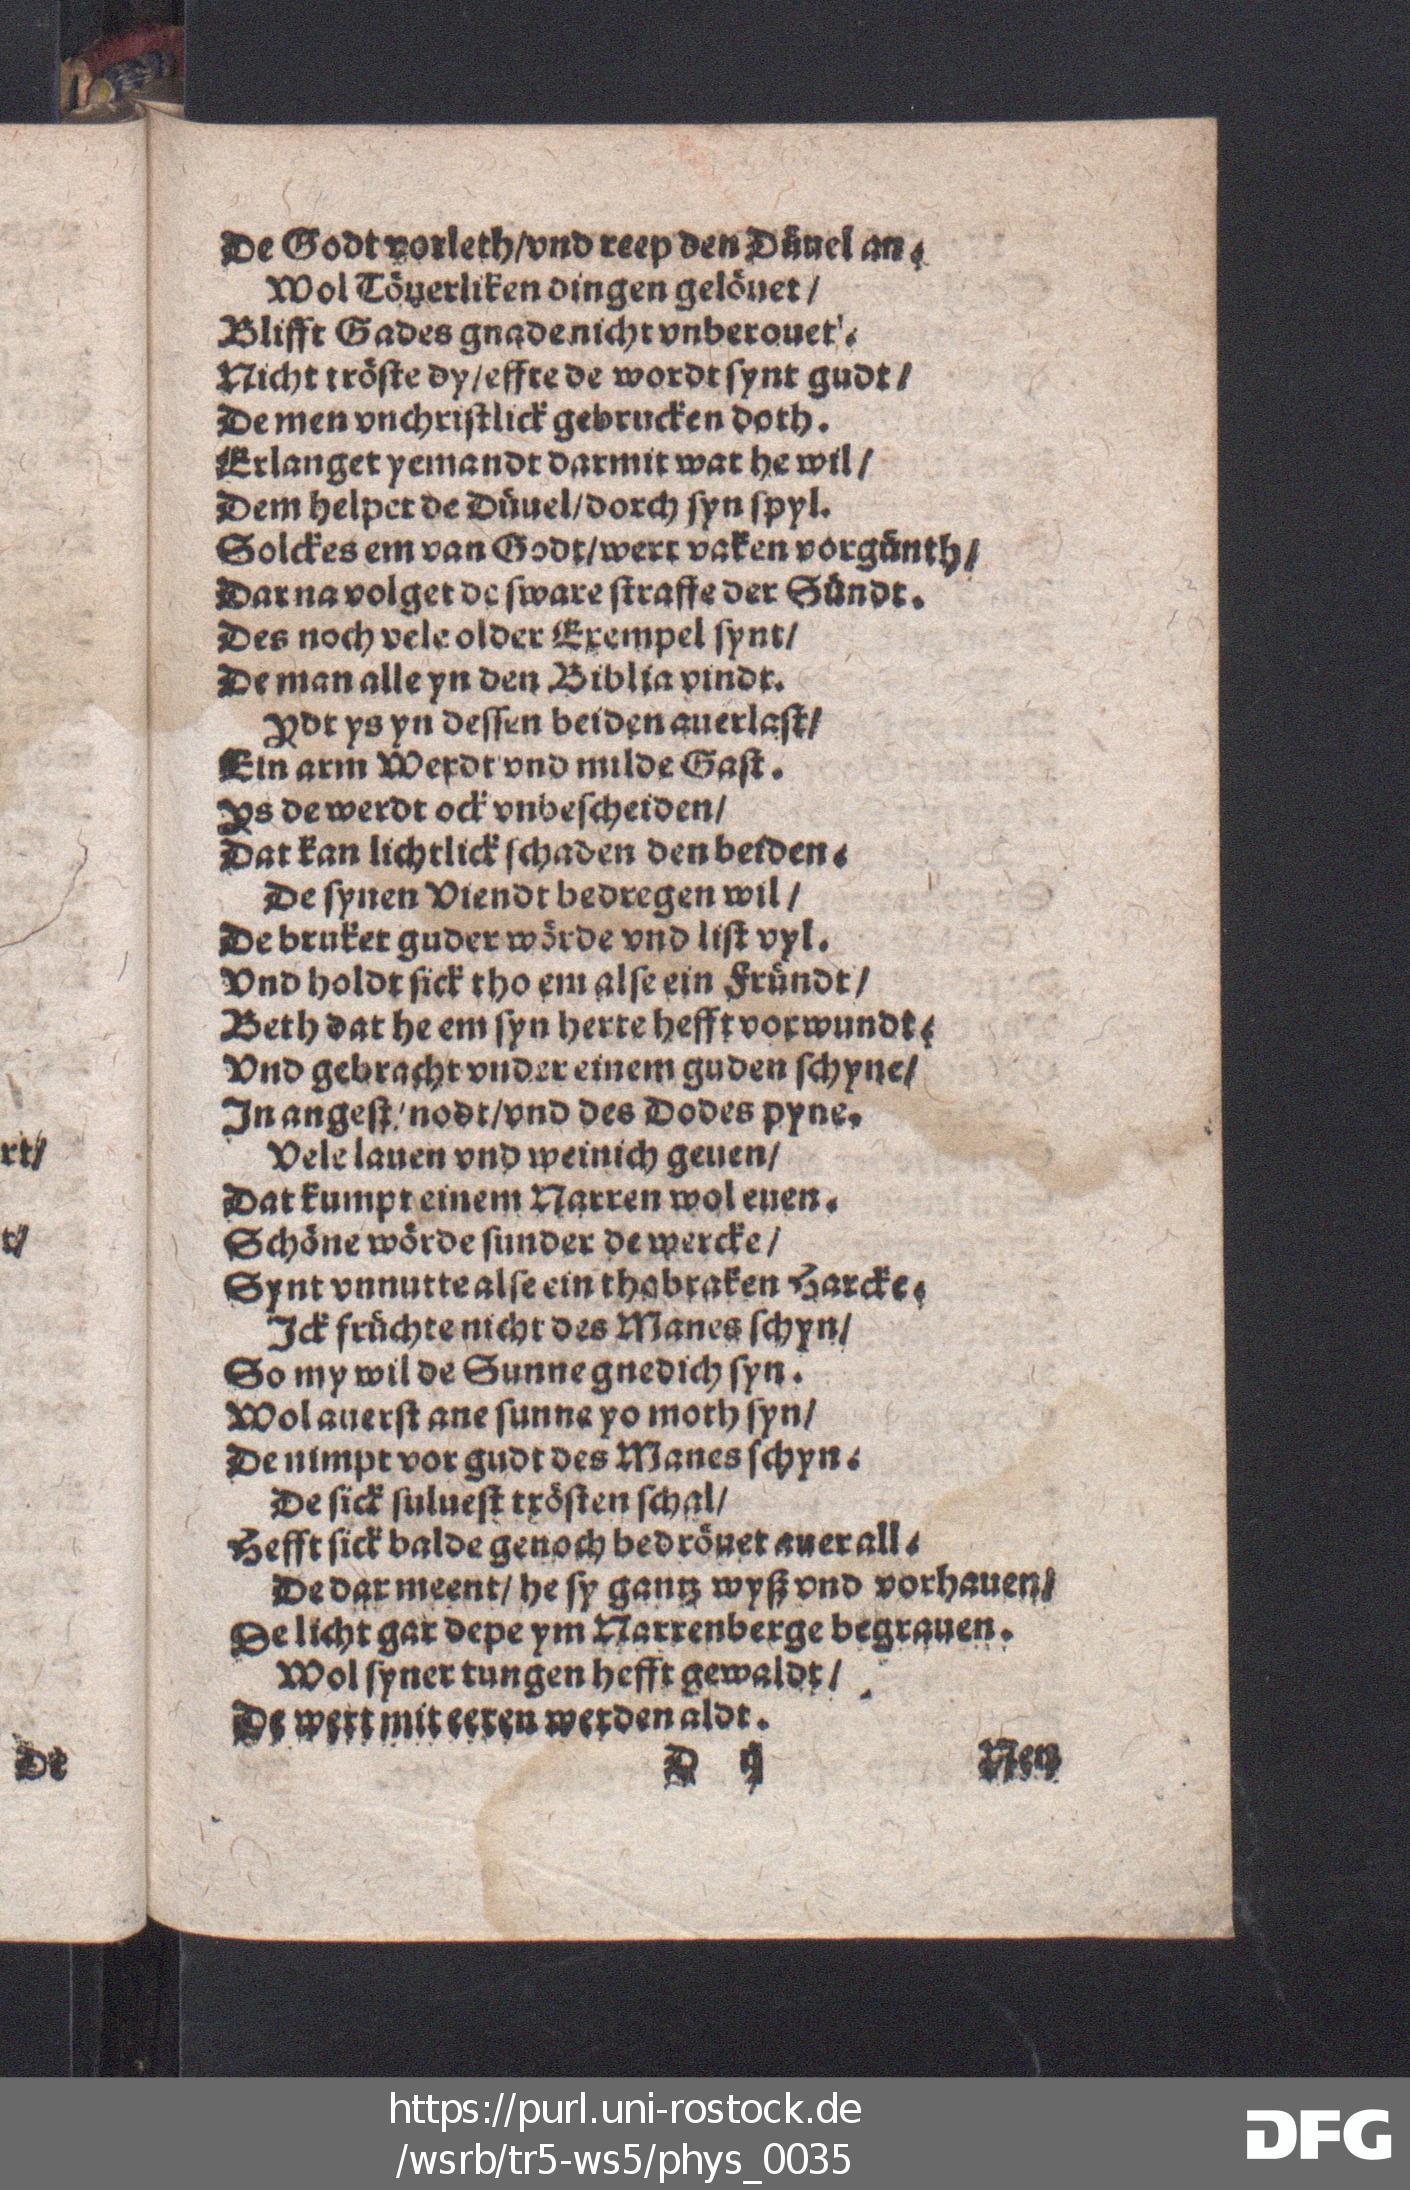 De Godt vorleth/vnd reep den Düuel an.
Wol Töuerliken dingen gelöuet/
Blifft Gades gnade nicht vnberouet.
Nicht tröste dy/effte de wordt synt gudt/
De men vnchristlick gebrucken doth.
Erlanget yemandt darmit wat he wil/
Dem helpet de Düuel/dorch syn spyl.
Solckes em van Godt/wert vaken vorgünth/
Dar na volget de sware straffe der Sündt.
Des noch vele older Exempel synt/
De man alle yn den Biblia vindt.
Ydt ys yn dessen beiden auerlast/
Ein arm Werdt vnd milde Gast.
Ys de werdt ock vnbescheiden/
Dat kan lichtlick schaden den beiden.
De synen Viendt bedregen wil/
De bruket guder wörde vnd list vyl.
Vnd holdt sick tho em alse ein Fründt/
Beth dat he em syn herte hefft vorwundt.
Vnd gebracht vnder einem guden schyne/
In angest/nodt/vnd des Dodes pyne.
Vele lauen vnd weinich geuen/
Dat kumpt einem Narren wol euen.
Schöne wörde sunder de wercke/
Synt vnnutte alse ein thobraken Harcke.
Ick früchte nicht des Manes schyn/
So my wil de Sunne gnedich syn.
Wol auerst ane sunne yo moth syn/
De nimpt vor gudt des Manes schyn.
De sick suluest trösten schal/
Hefft sick balde genoch bedröuet auer all.
De dar meent/he sy gantz wyß vnd vorhauen/
De licht gar depe ym Narrenberge begrauen.
Wol syner tungen hefft gewaldt/
De wert mit eeren werden aldt.
D ij
Ney
rt/
t/
De
https://purl.uni-rostock.de
/wsrb/tr5-ws5/phys_0035
DFG